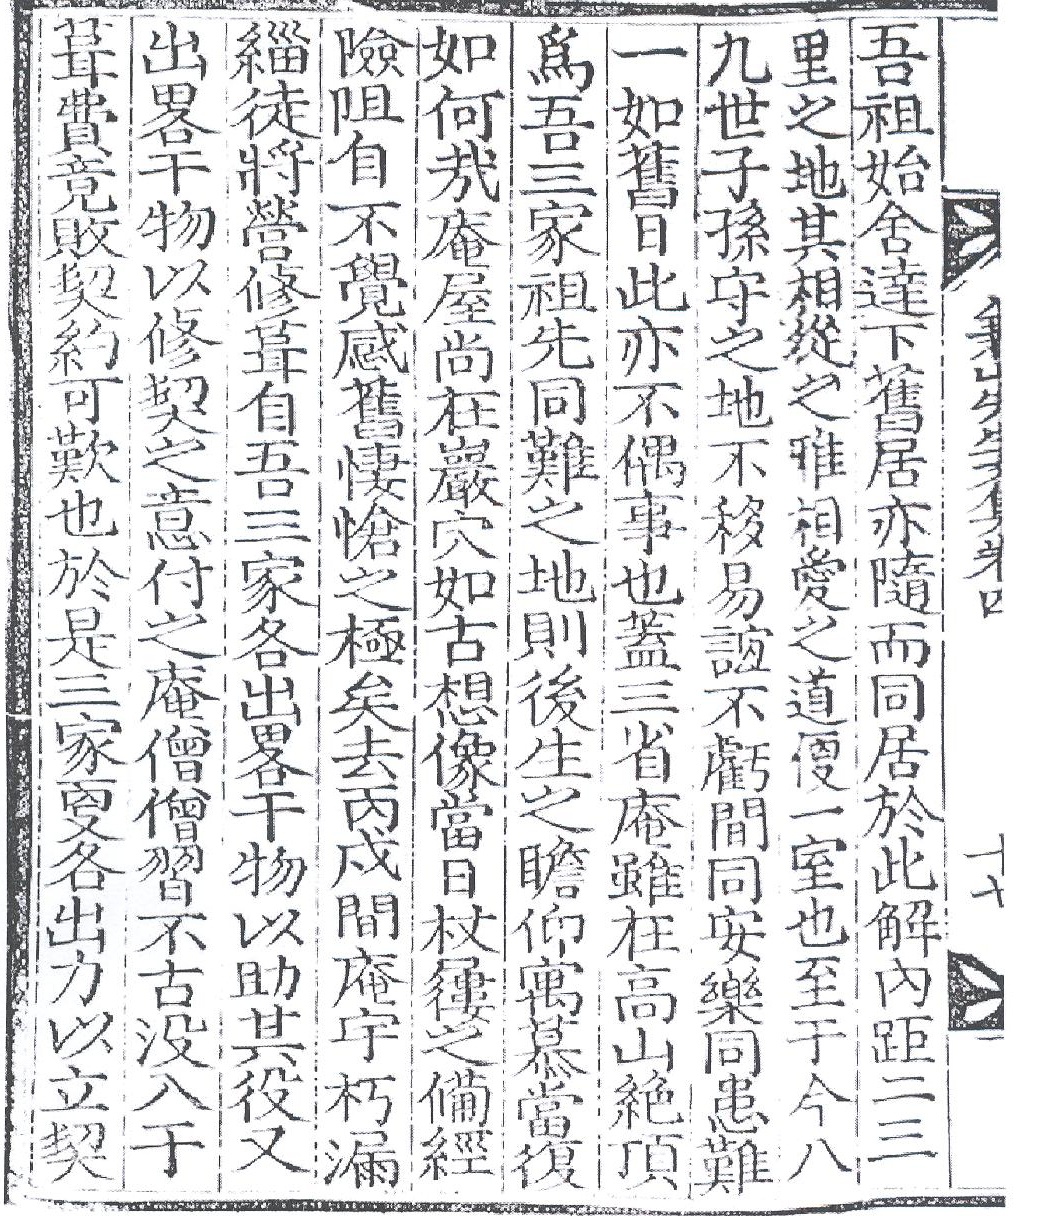 吾祖始舍達下舊居亦隨而同居於此解內距二三
里之地其相從之雅相愛之道便一室也至于今八
九世子孫守之地不移易誼不虧間同安樂同患難
一如舊日此亦不偶事也蓋三省庵雖在高山絶頂
爲吾三家祖先同難之地則後生之瞻仰寓慕當復
如何哉庵屋尚在巖穴如古想像當日杖屨之備經
險阻自不覺感舊悽愴之極矣去丙戍間庵宇朽漏
緇徒將營修葺自吾三家各出畧干物以助其役又
出畧干物以修契之意付之庵僧僧習不古没入于
葺費竟敗契約可歎也於是三家更各出力以立契
先生文集卷四
十七